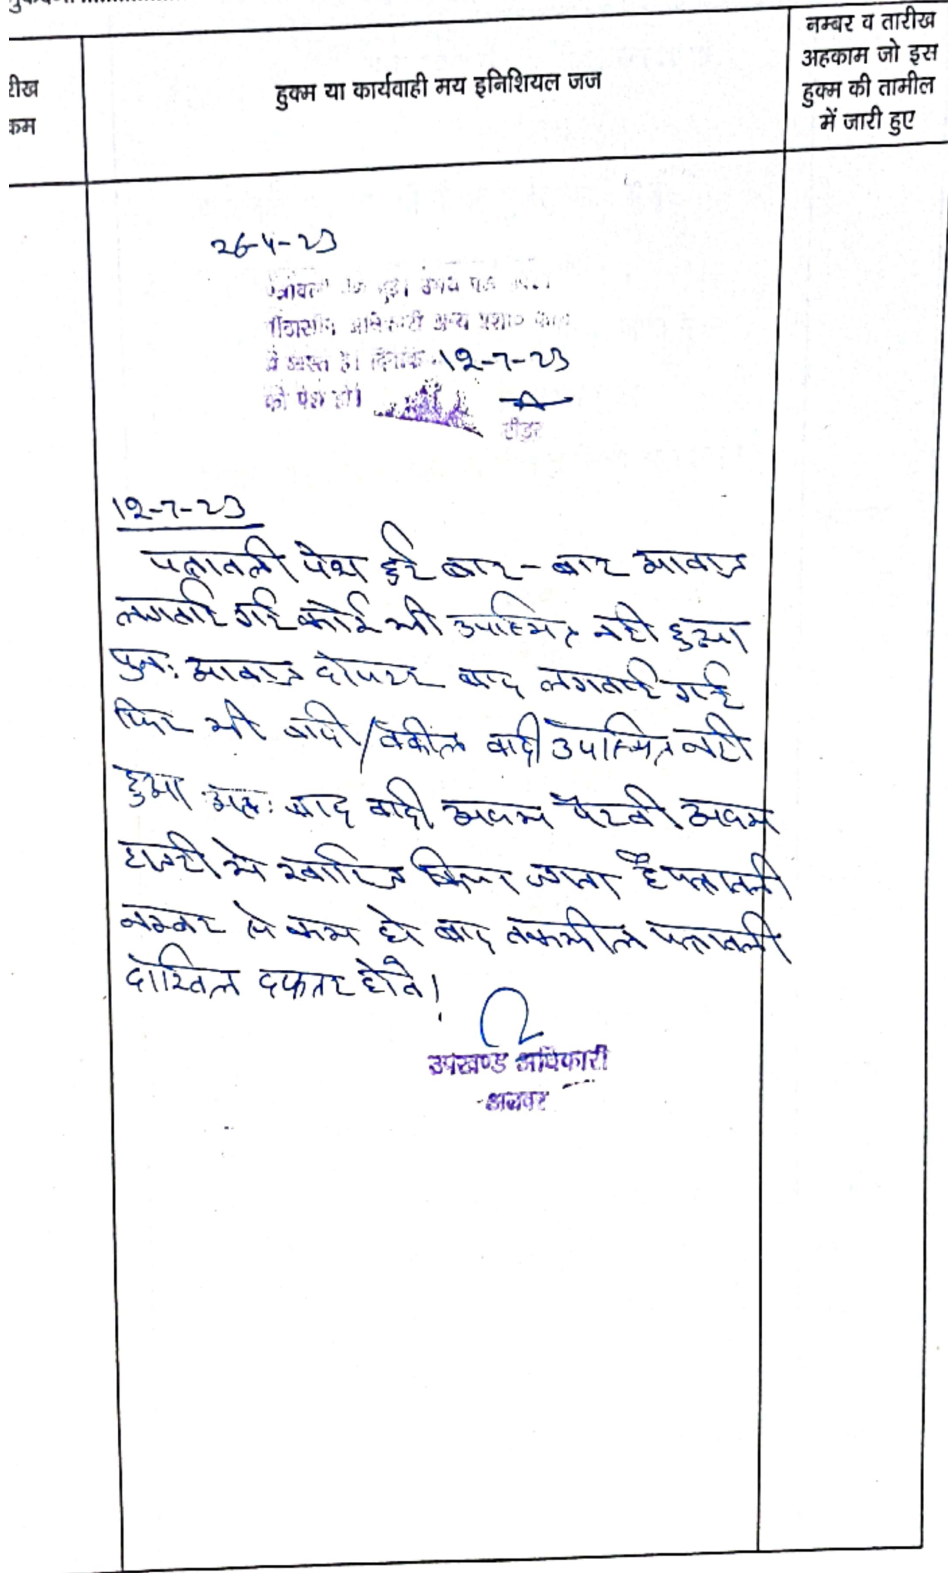 रीख
कम
हुक्म या कार्यवाही मय इनिशियल जज
नम्बर व तारीख
अहकाम जो इस
हुक्म की तामील
में जारी हुए
26-4-23
पीठासीन अधिकारी अन्य
व्यस्त है। दिनांक 12-7-23
को पेश हो।
रीडर
12-7-23
पत्रावली पेश हुई बार-बार आवाज
लगवाई गई कोई भी उपस्थित नही हुआ
पुनः आवाज दोपहर बाद लगवाई गई
फिर भी वादी/वकील वादी उपस्थित नही
हुआ अतः वाद वादी अदम पैरवी अदम
हाजरी मे खारिज किया जाता है पत्रावली
नम्बर से कम हो बाद तकमील पत्रावली
दाखिल दफ्तर होवे।
उपखण्ड अधिकारी
अलवर